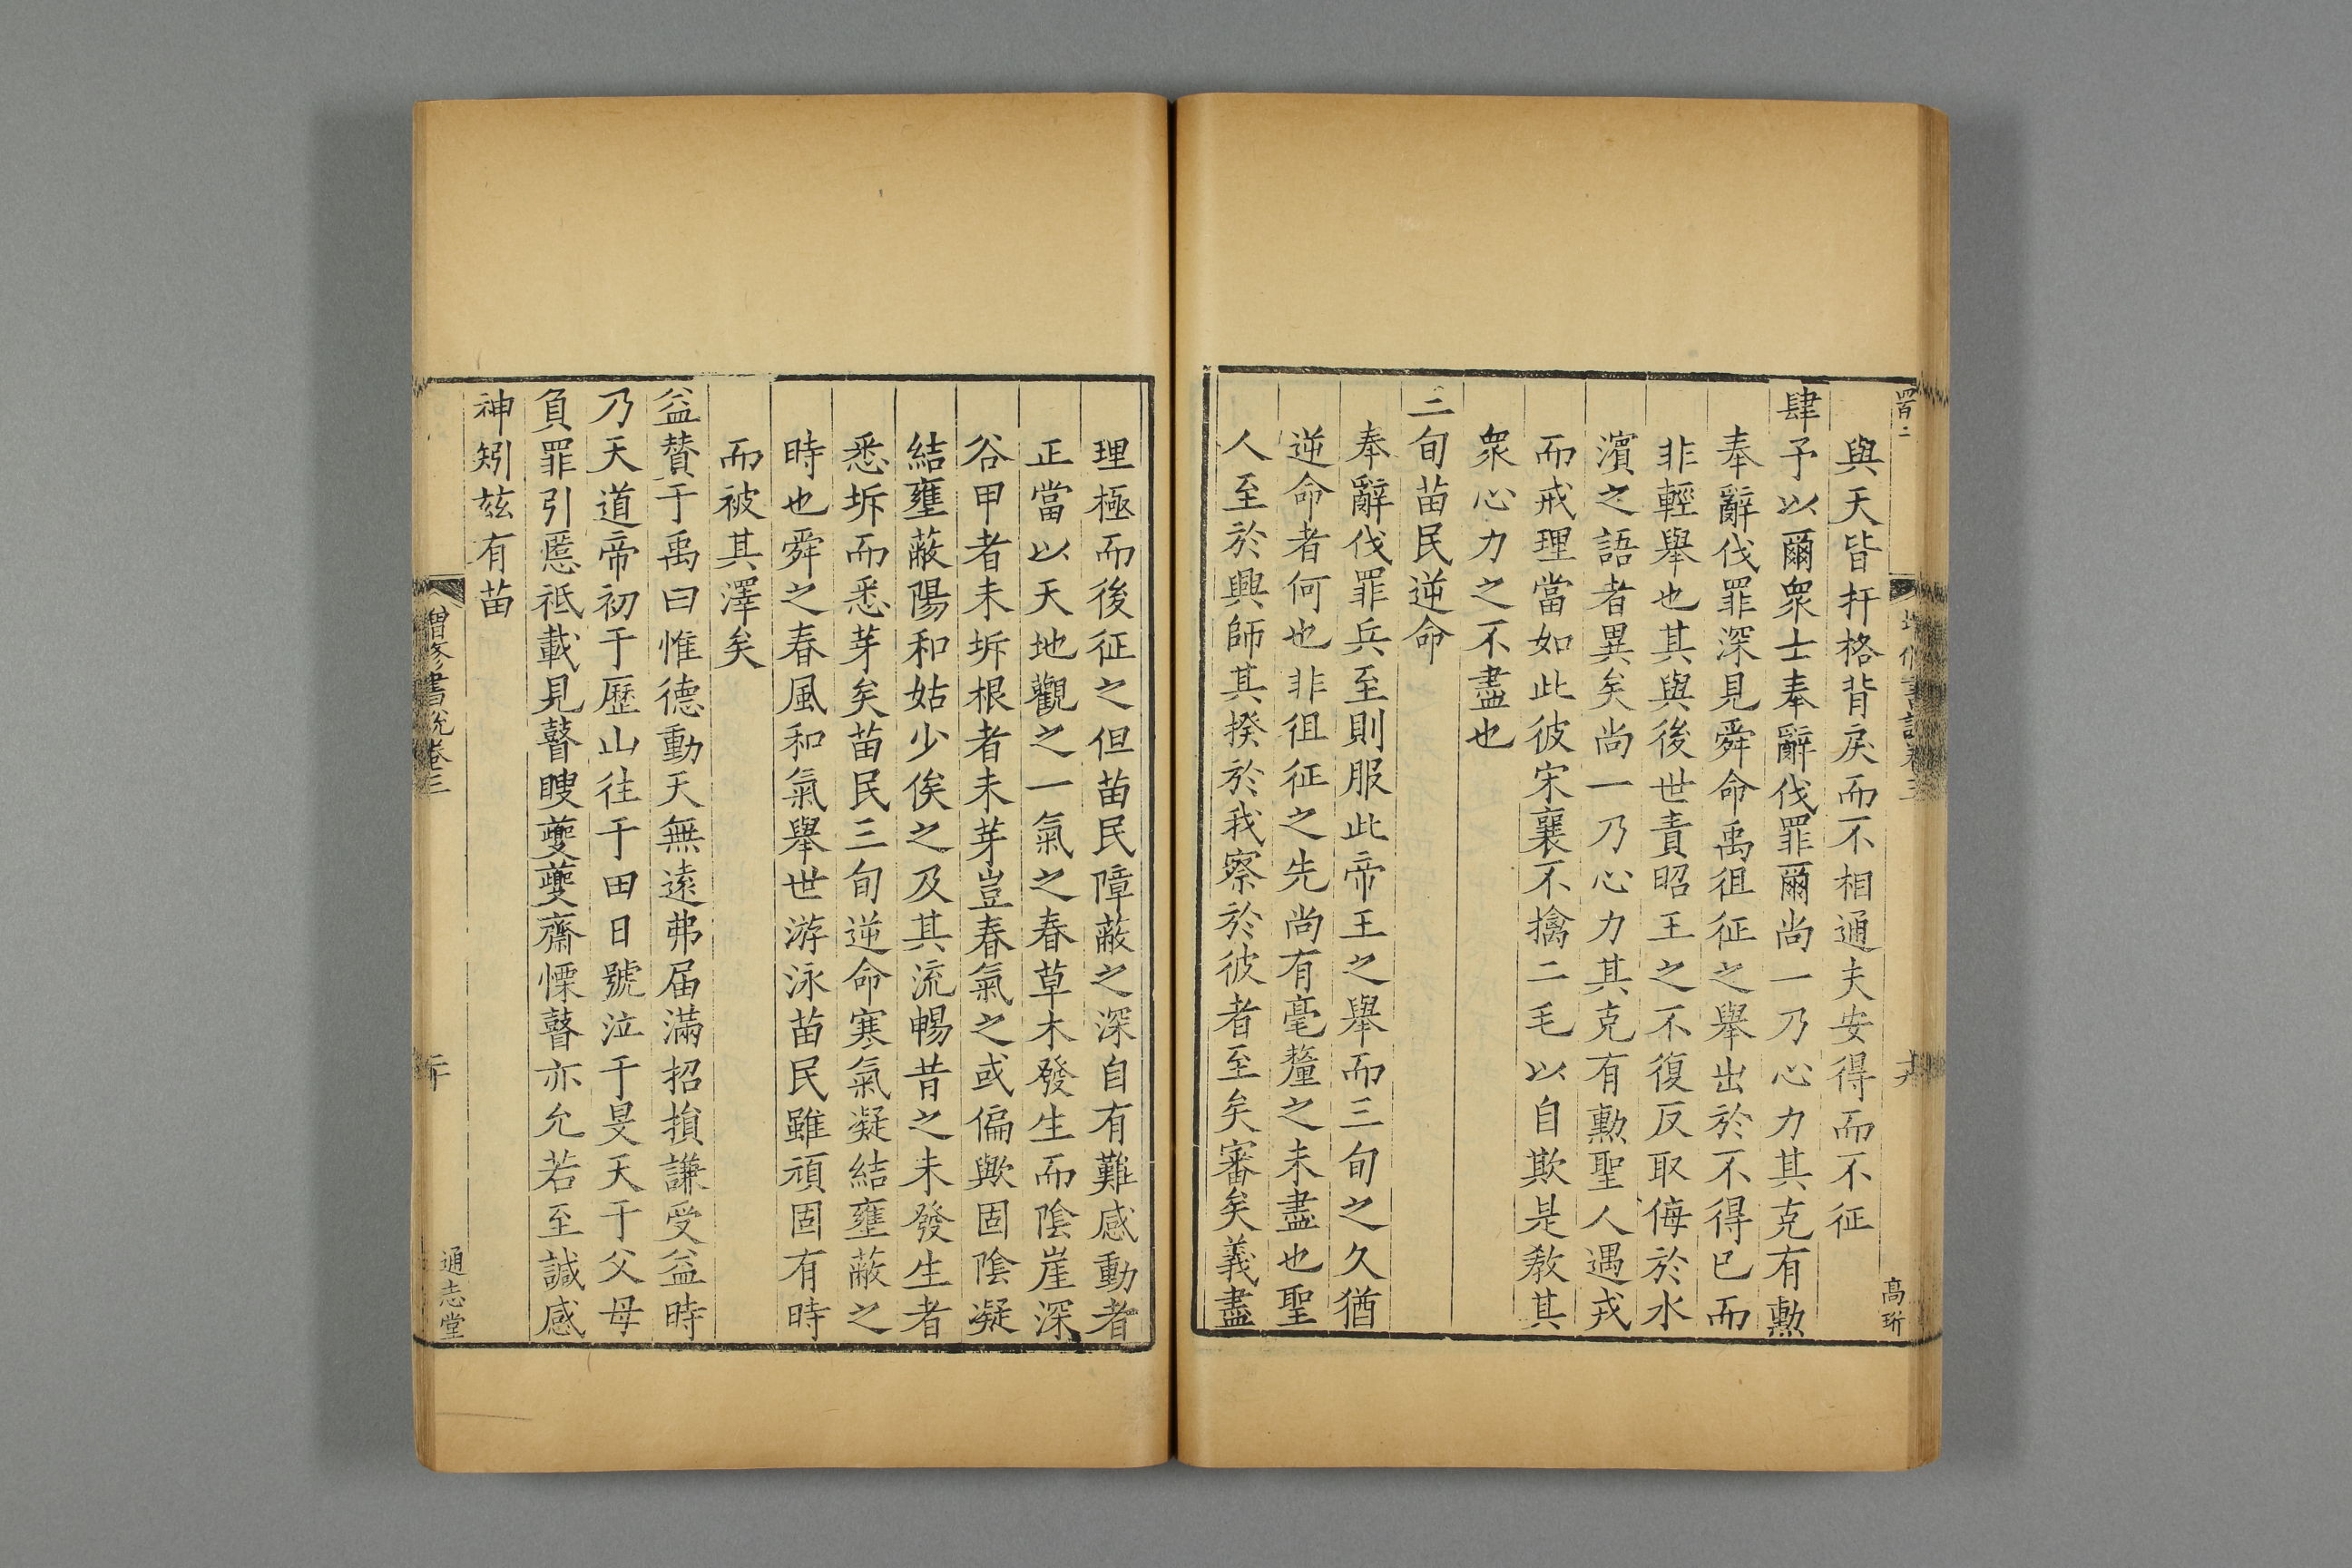 四百二
增修書說卷三
十九
高珩
與天皆扞格背戾而不相通夫安得而不征
肆予以爾眾士奉辭伐罪爾尚一乃心力其克有勲
奉辭伐罪深見舜命禹徂征之舉出於不得已而
非輕舉也其與後世責昭王之不復反取侮於水
濵之語者異矣尚一乃心力其克有勲聖人遇戎
而戒理當如此彼宋襄不擒二毛以自欺是敎其
衆心力之不盡也
三旬苗民逆命
奉辭伐罪兵至則服此帝王之舉而三旬之久猶
逆命者何也非徂征之先尚有毫釐之未盡也聖
人至於興師其揆於我察於彼者至矣審矣義盡
理極而後征之但苗民障蔽之深自有難感動者
正當以天地觀之一氣之春草木發生而隂崖深
谷甲者未坼根者未芽豈春氣之或偏歟固隂凝
結壅蔽陽和姑少俟之及其流暢昔之未發生者
悉坼而悉芽矣苗民三旬逆命寒氣凝結壅蔽之
時也舜之春風和氣舉世游泳苗民雖頑固有時
而被其澤矣
益贊于禹曰惟德動天無逺弗届滿招損謙受益時
乃天道帝初于歷山往于田日號泣于旻天于父母
負罪引慝祗載見瞽瞍夔夔齋慄瞽亦允若至諴感
神矧玆有苗
增修書說卷三
二十
通志堂